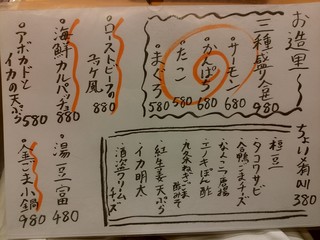 お造里
三種盛り合せ 980
・サーモン 680
・かんぱち 680
・たこ 580
・まぐろ 580
・ローストビーフのユッケ風 880
・海鮮カルパッチョ 880
・アボカドとイカの天ぷら 580
ちょい肴 all 380
・枝豆
・タコワサビ
・合鴨ごまチーズ
・なんこつ唐揚
・エノキポン酢
・九条ねぎごま酢みそ
・紅生姜天ぷら
・イカ明太
・酒盗クリームチーズ
・湯豆富 480
・金ごま小鍋 980